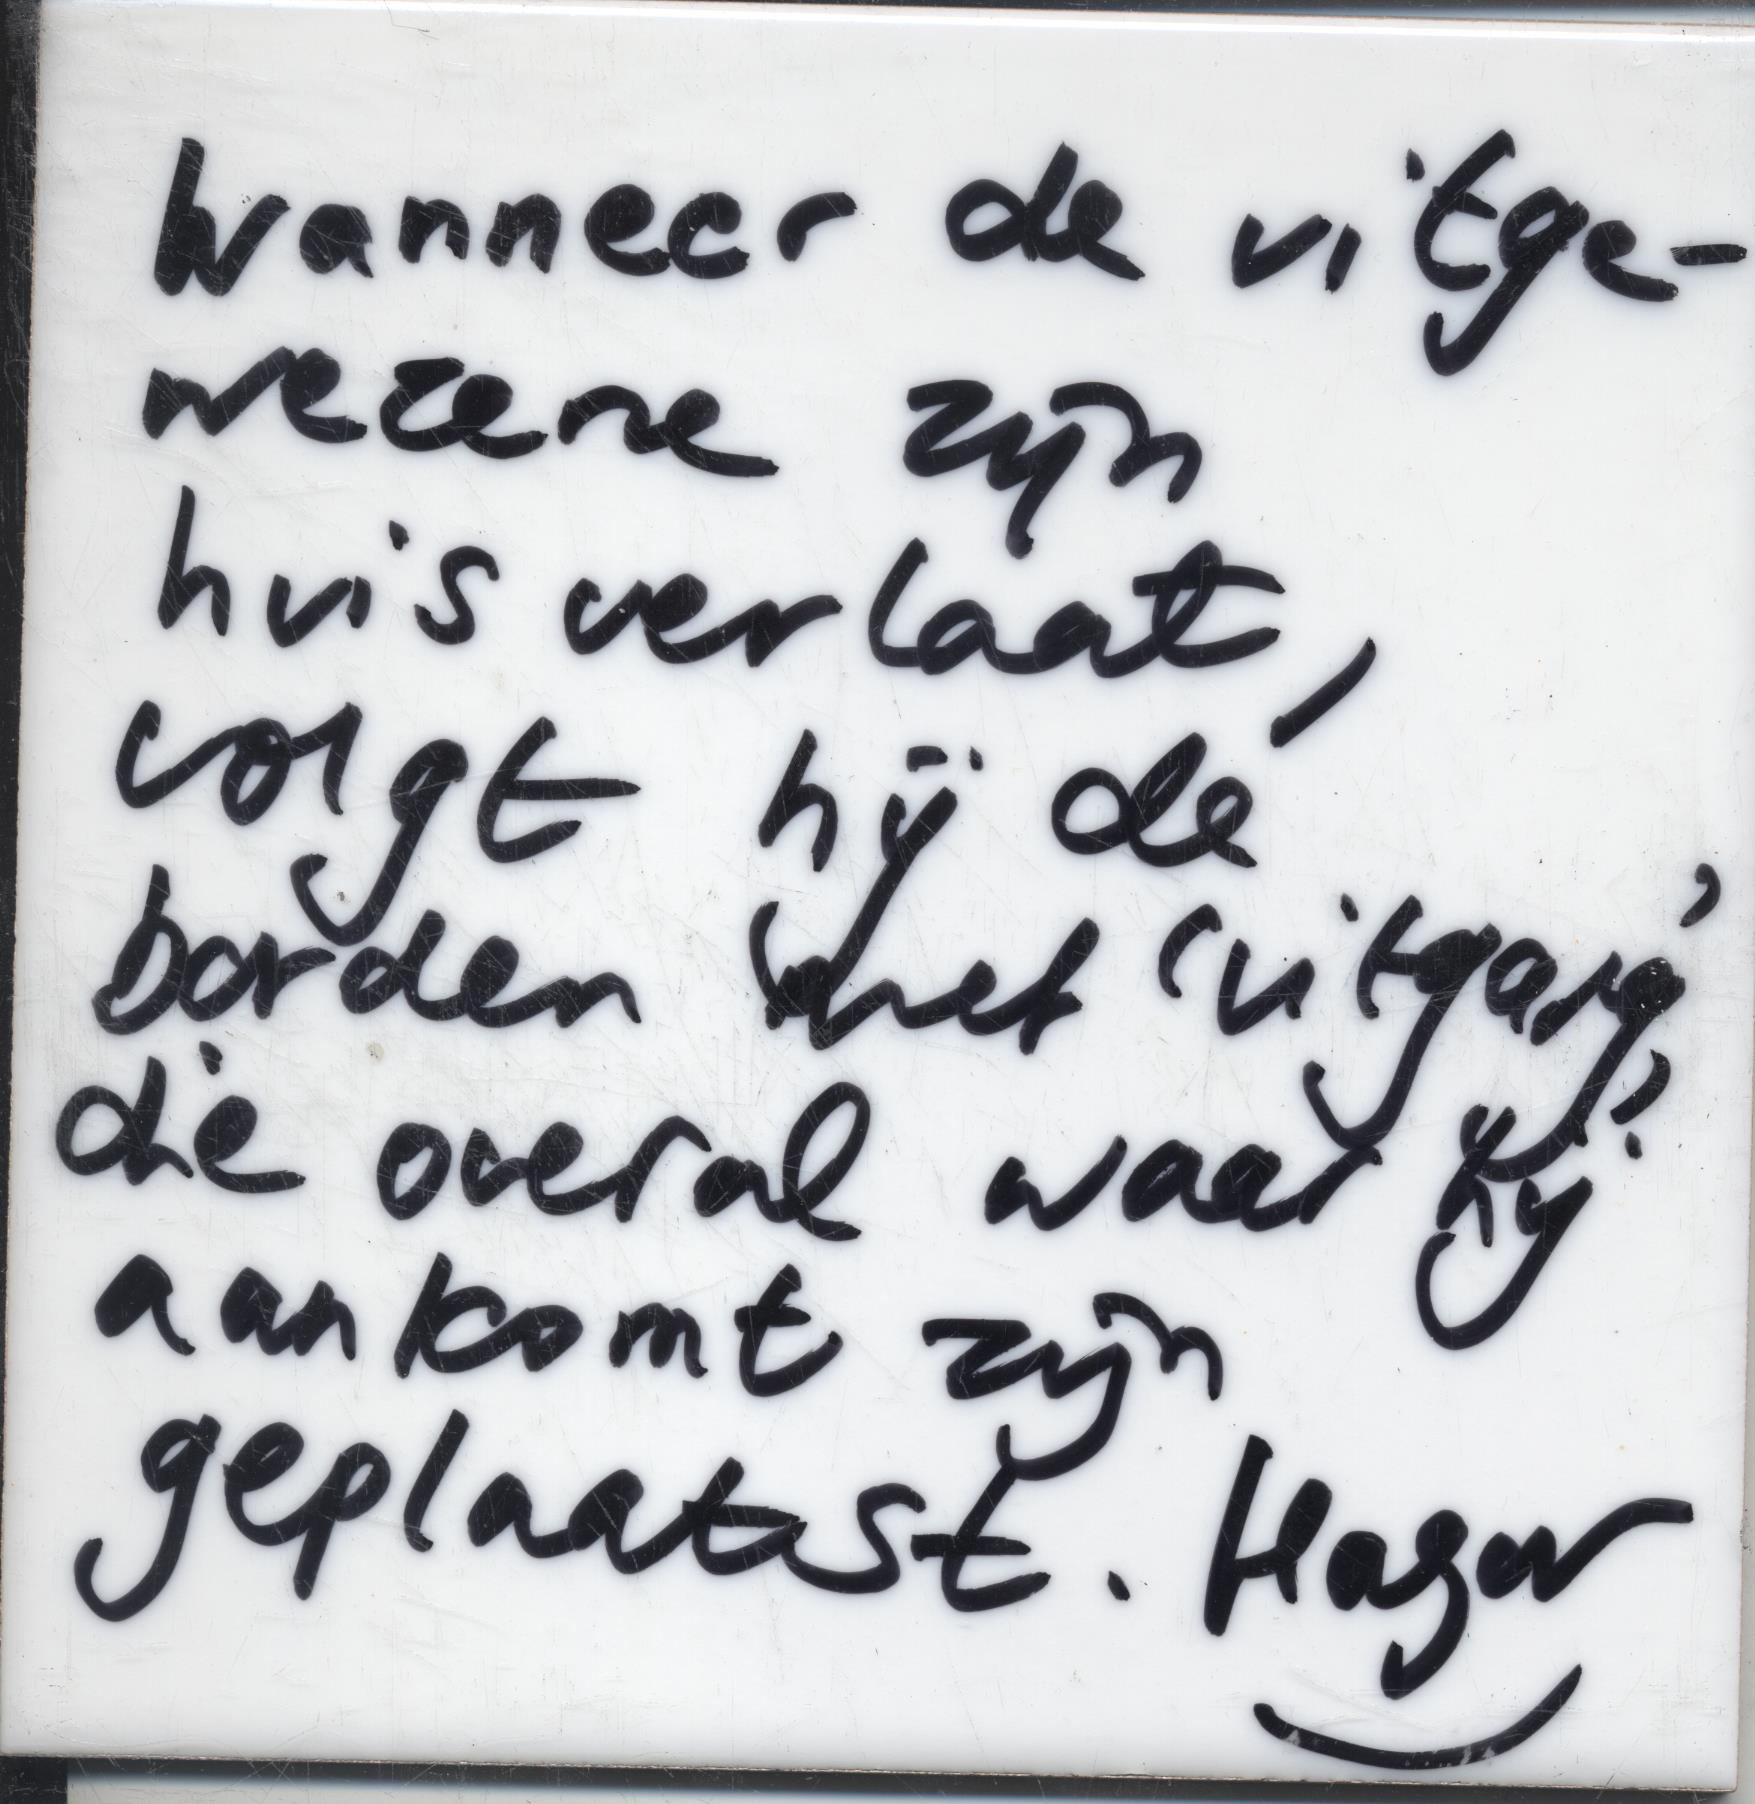 Wanneer de uitge-
wezene zijn
huis verlaat,
volgt hij de
borden met 'uitgang',
die overal waar hij
aankomt zijn
geplaatst. Hagar